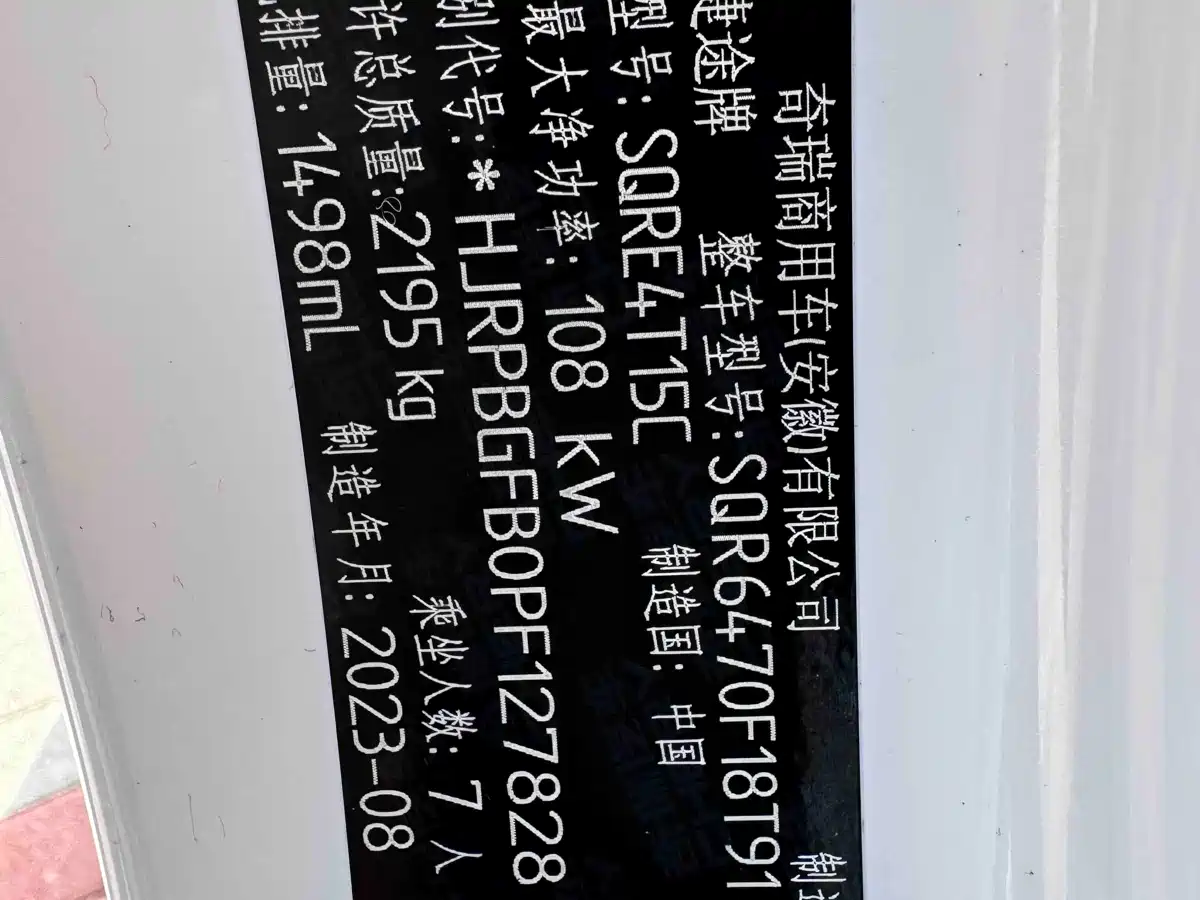 奇瑞商用车(安徽)有限公司 制造
捷途牌 整车型号:SQR6470F18T91
型号:SQRE4T15C 制造国:中国
最大净功率:108 kW
别代号:*HJRPBGFB0PF127828
许总质量:2195kg 乘坐人数:7人
排量:1498mL 制造年月:2023-08